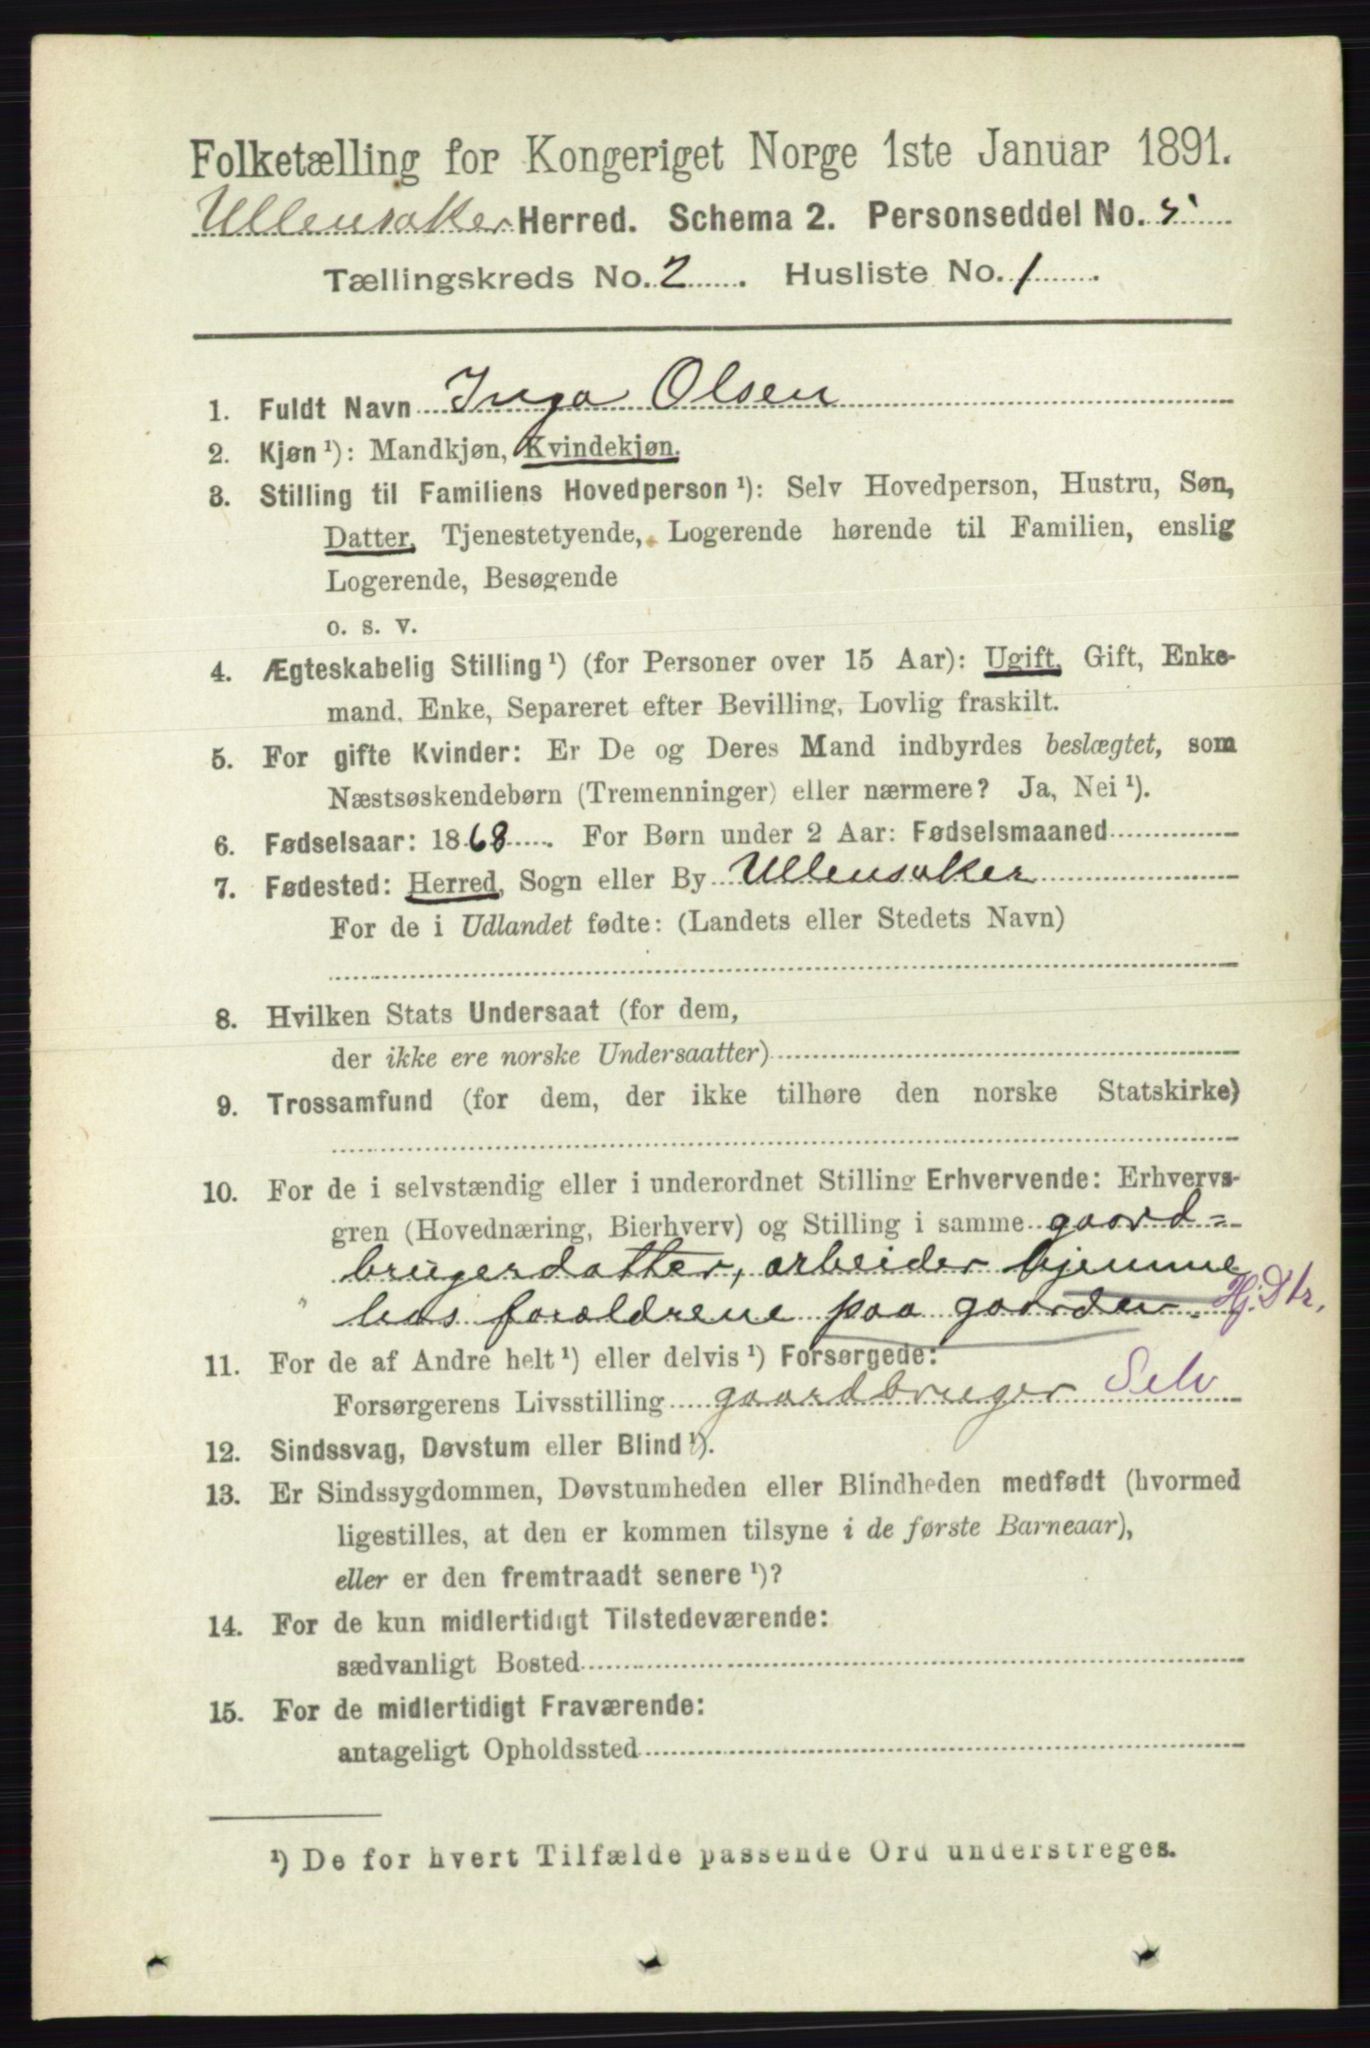 Folketælling for Kongeriget Norge 1ste Januar 1891.
Ullensaker Herred. Schema 2. Personseddel No. 5
Tællingskreds No. 2. Husliste No. 1.
1. Fuldt Navn Inga Olsen
2. Kjøn ¹): Mandkjøn, Kvindekjøn.
3. Stilling til Familiens Hovedperson ¹): Selv Hovedperson, Hustru, Søn,
Datter, Tjenestetyende, Logerende hørende til Familien, enslig
Logerende, Besøgende
o. s. v.
4. Ægteskabelig Stilling ¹) (for Personer over 15 Aar): Ugift, Gift, Enke-
mand, Enke, Separeret efter Bevilling, Lovlig fraskilt.
5. For gifte Kvinder: Er De og Deres Mand indbyrdes beslægtet, som
Næstsøskendebørn (Tremenninger) eller nærmere? Ja, Nei ¹).
6. Fødselsaar: 1868. For Børn under 2 Aar: Fødselsmaaned
7. Fødested: Herred, Sogn eller By Ullensaker
For de i Udlandet fødte: (Landets eller Stedets Navn)
8. Hvilken Stats Undersaat (for dem,
der ikke ere norske Undersaatter)
9. Trossamfund (for dem, der ikke tilhøre den norske Statskirke)
10. For de i selvstændig eller i underordnet Stilling Erhvervende: Erhvervs-
gren (Hovednæring, Bierhverv) og Stilling i samme gaard-
brugerdatter, arbeider hjemme
hos forældrene paa gaarden. Hj. Dtr.
11. For de af Andre helt ¹) eller delvis ¹) Forsørgede:
Forsørgerens Livsstilling gaardbruger Selv
12. Sindssvag, Døvstum eller Blind ¹).
13. Er Sindssygdommen, Døvstumheden eller Blindheden medfødt (hvormed
ligestilles, at den er kommen tilsyne i de første Barneaar),
eller er den fremtraadt senere ¹)?
14. For de kun midlertidigt Tilstedeværende:
sædvanligt Bosted
15. For de midlertidigt Fraværende:
antageligt Opholdssted
¹) De for hvert Tilfælde passende Ord understreges.